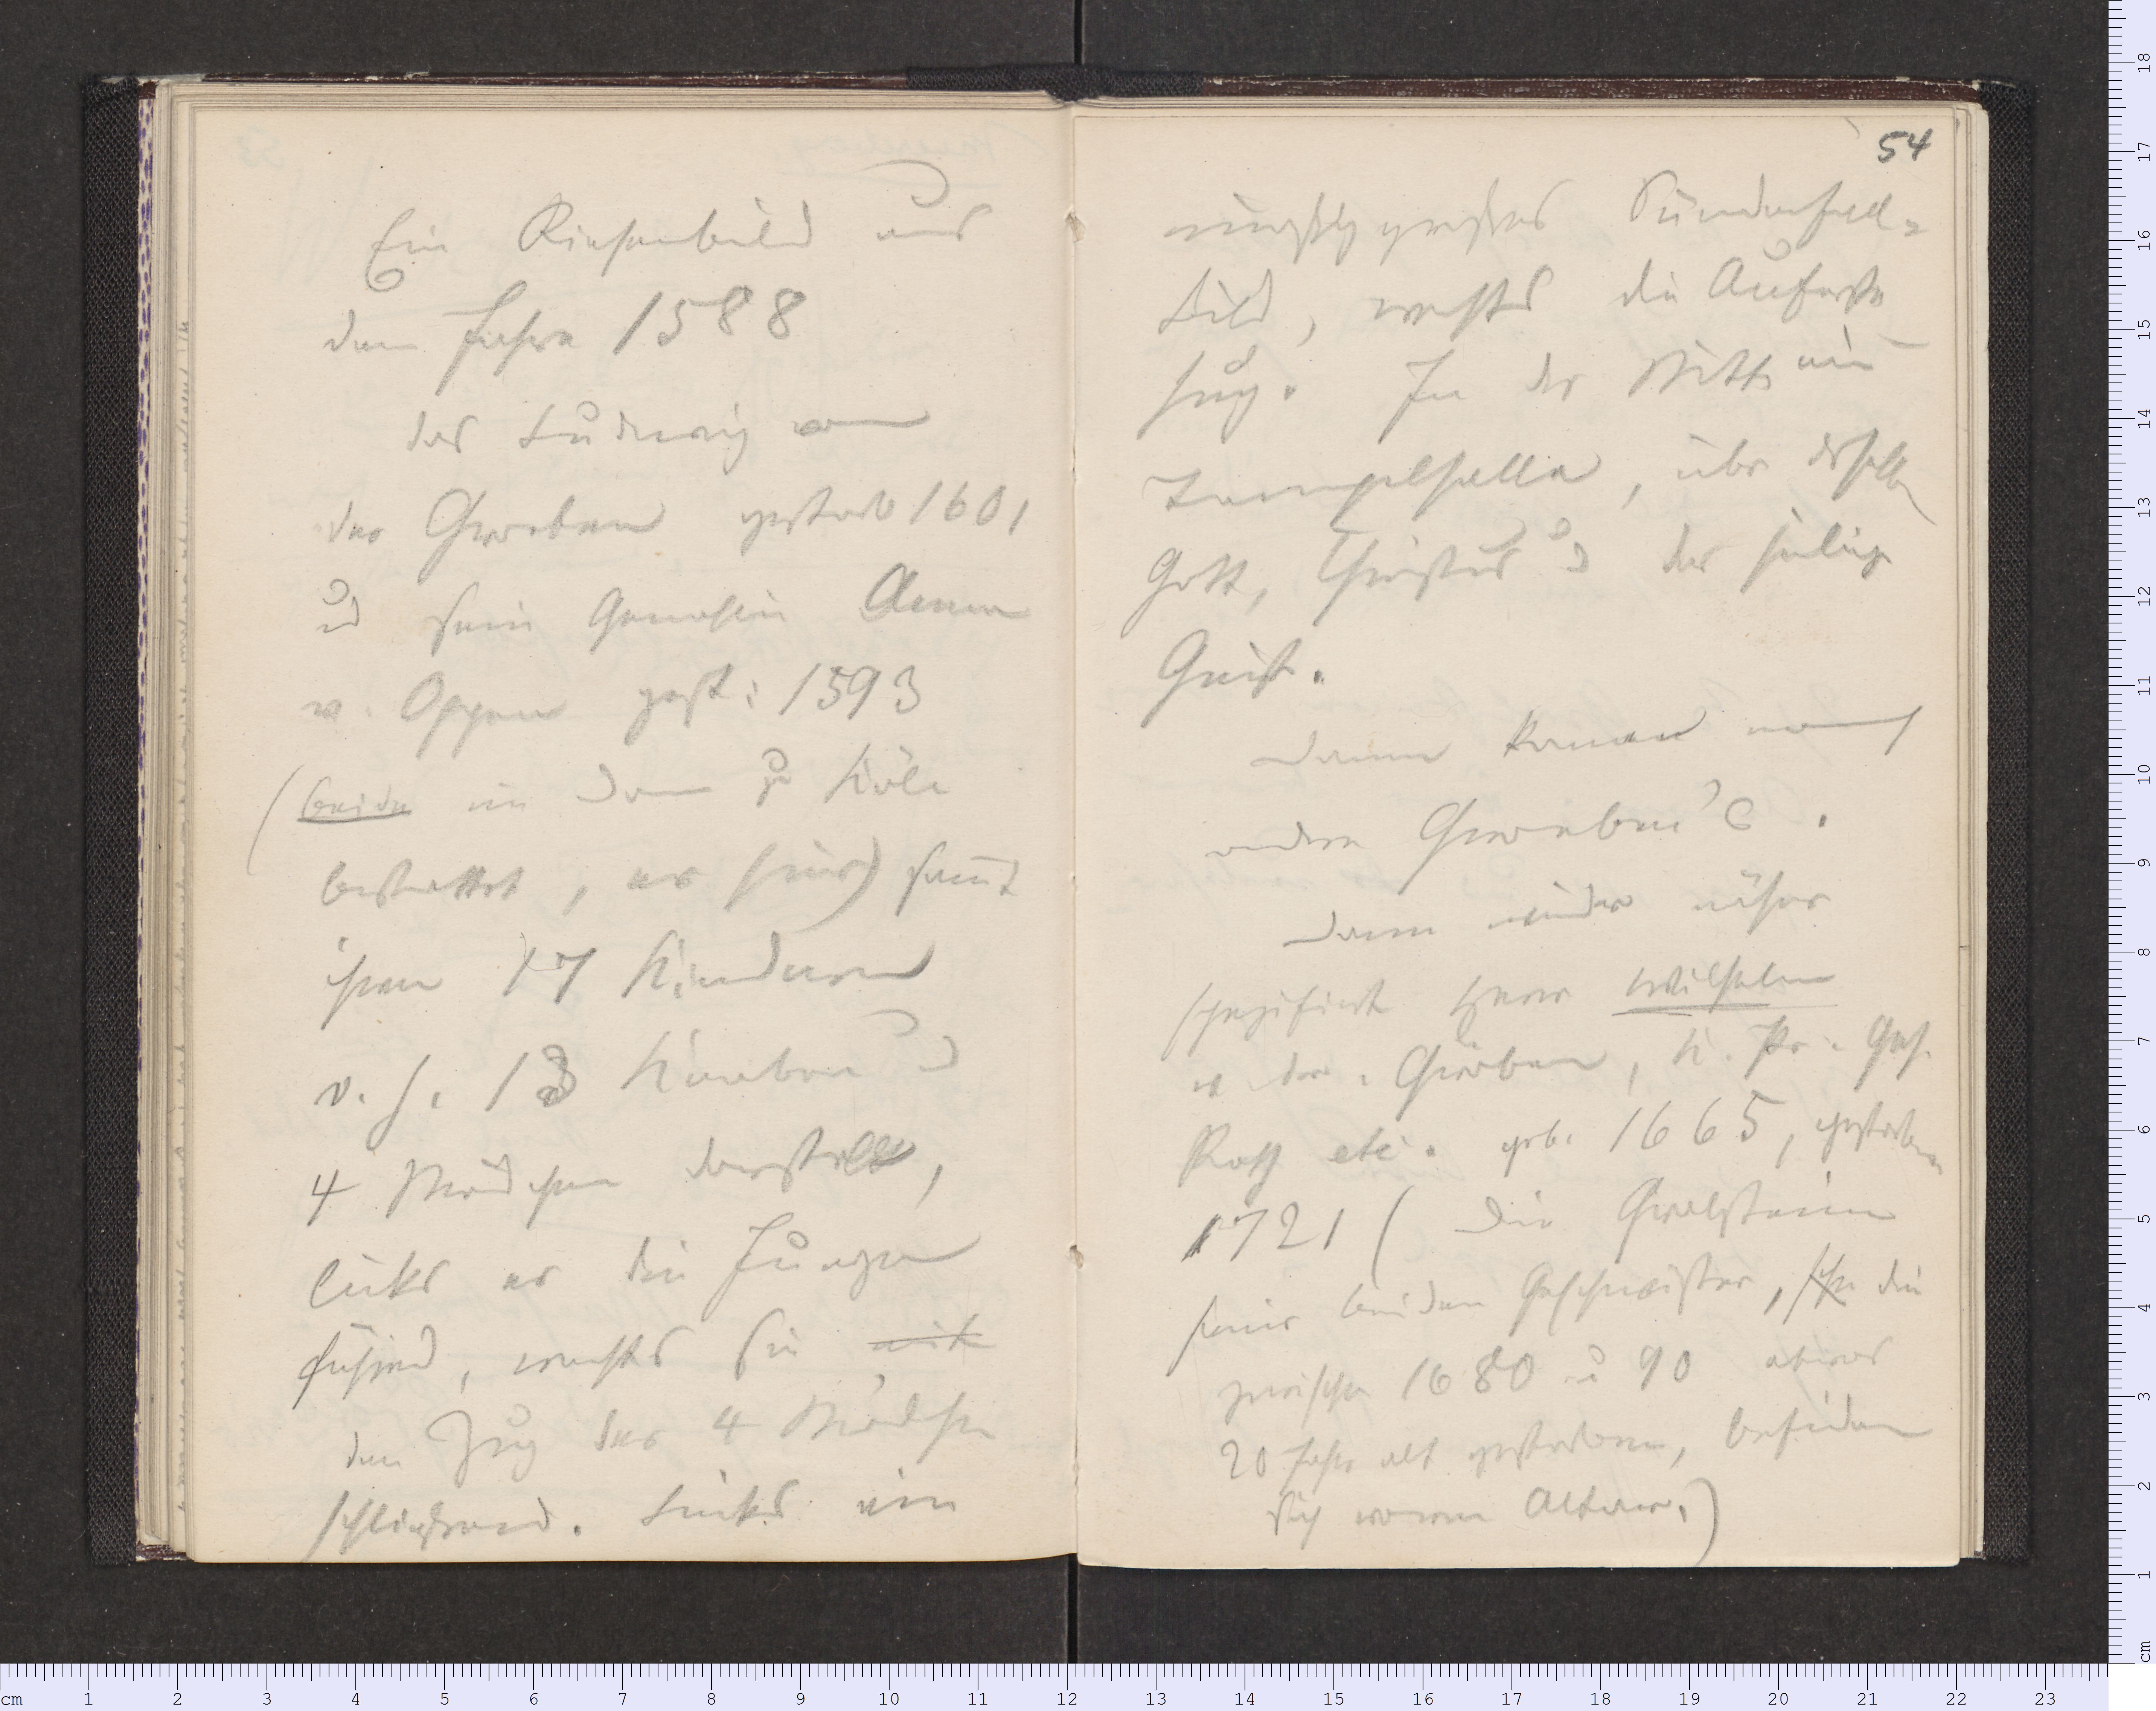 Ein Riesenbild aus
dem Jahre 1588
das Ludwig von
der Groeben gestorb 1601
und sein Gemahlin Anna
v. Oppen gest: 1593
(beide im Dom zu Köln
bestattet, er hier) sammt
ihren 17 Kindern
d. h. 13 Knaben u
4 Mädchen darstellt,
links er die Jungen
führend, rechts sie mit
den Zug der 4 Mädchen
schließend. Links ein
54
mäßig großes Sündenfall-
bild, rechts die Aufersteh
hug. In der Mitte ein
Tempelhalle, über derselben
Gott, Christus u der heilige
Geist.
Dann kamen noch
andre Groeben's.
Dann wieder näher
spezifiziert Herr Wilhelm
v der Gröben, K. Pr. Geh.
Rath etc. geb. 1665, gestorben
1721 (Die Grabsteine
seiner beiden Geschwister, die
zwischen 1680 u 90 etwas
20 Jahr alt gestorben, befinden
sich vorm Altar.)